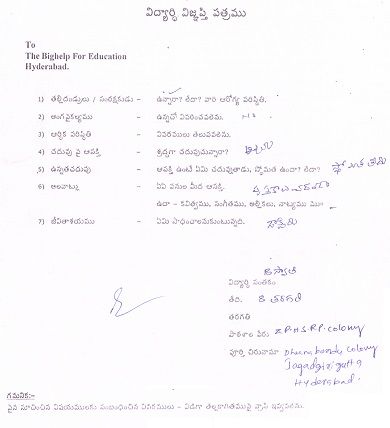 విద్యార్థి విజ్ఞప్తి పత్రము
To
The Bighelp For Education
Hyderabad.
1) తల్లిదండ్రులు / సంరక్షకుడు - ఉన్నారా? లేదా? వారి ఆరోగ్య పరిస్థితి.
2) అంగవైకల్యము - ఉన్నచో వివరించవలెను.
3) ఆర్థిక పరిస్థితి - వివరములు తెలుపవలెను.
4) చదువు పై ఆసక్తి - శ్రద్ధగా చదువుచున్నారా?
5) ఉన్నతచదువు - ఆసక్తి ఉంటే ఏమి చదువుతాడు, స్తోమత ఉందా? లేదా?
6) అలవాట్లు - ఏఏ పనుల మీద ఆసక్తి.
ఉదా - కవిత్వము, సంగీతము, అల్లికలు, నాట్యము
7) జీవితాశయము - ఏమి సాధించాలనుకుంటున్నది.
విద్యార్థి సంతకం
తేది. 8 తరగతి
తరగతి
పాఠశాల పేరు Z.P.H.S.R.P. colony
పూర్తి చిరునామా colony
Jagadgirigutta
Hyderabad.
గమనిక:-
పైన సూచించిన విషయములకు సంబంధించిన వివరములు - విడిగా తెల్లకాగితముపై వ్రాసి ఇవ్వవలెను.